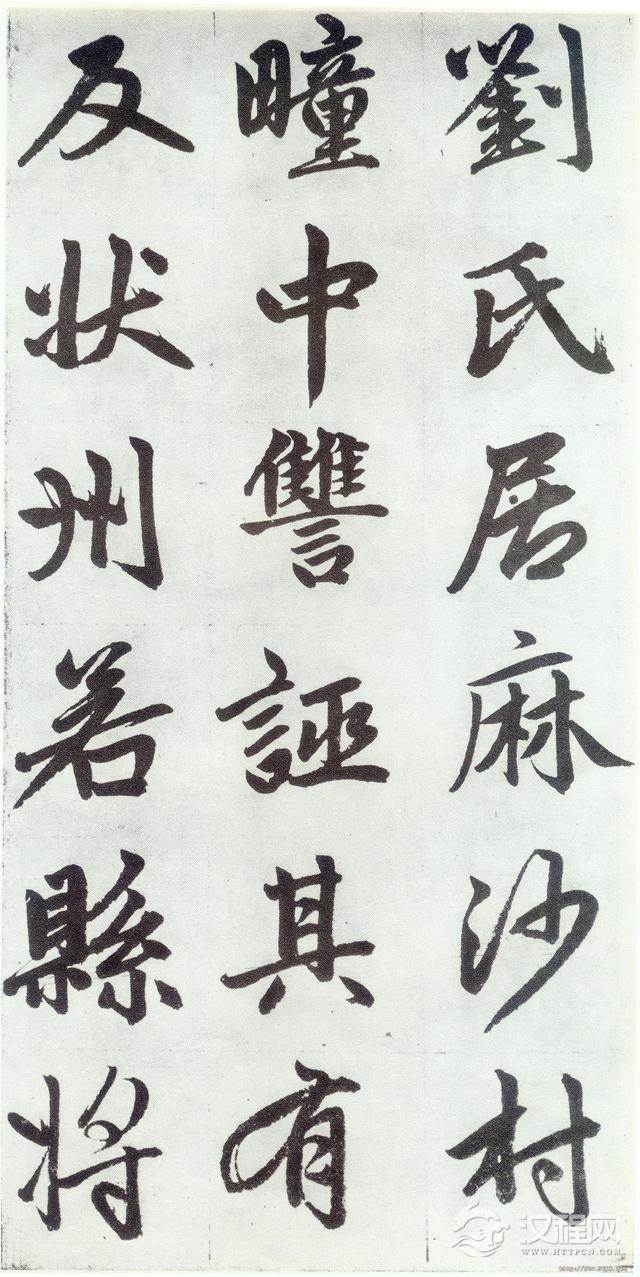 劉氏居麻沙村
疃中讐誣其有
反状州若縣將
汉程网
WWW.HTTPCN.COM